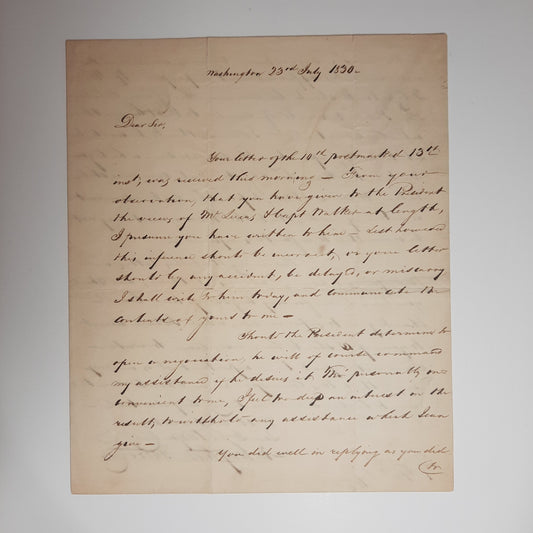 Washington 23rd July 1830—
Dear Sir,
Your letter of the 10th postmarked 13th
inst, was received this morning — From your
observation, that you have given to the President
the views of Mr Lucas & Capt Walker at length,
I presume you have written to him — Lest however
this inference should be incorrect, or your letter
should by any accident, be delayed, or miscarry
I shall write to him today, and communicate the
contents of yours to me —
Should the President determine to
open a negociation, he will of course command
my assistance if he desires it. Tho' personally in
convenient to me, I feel too deep an interest in the
result, to withhold any assistance which I can
give —
You did well in replying as you did
to